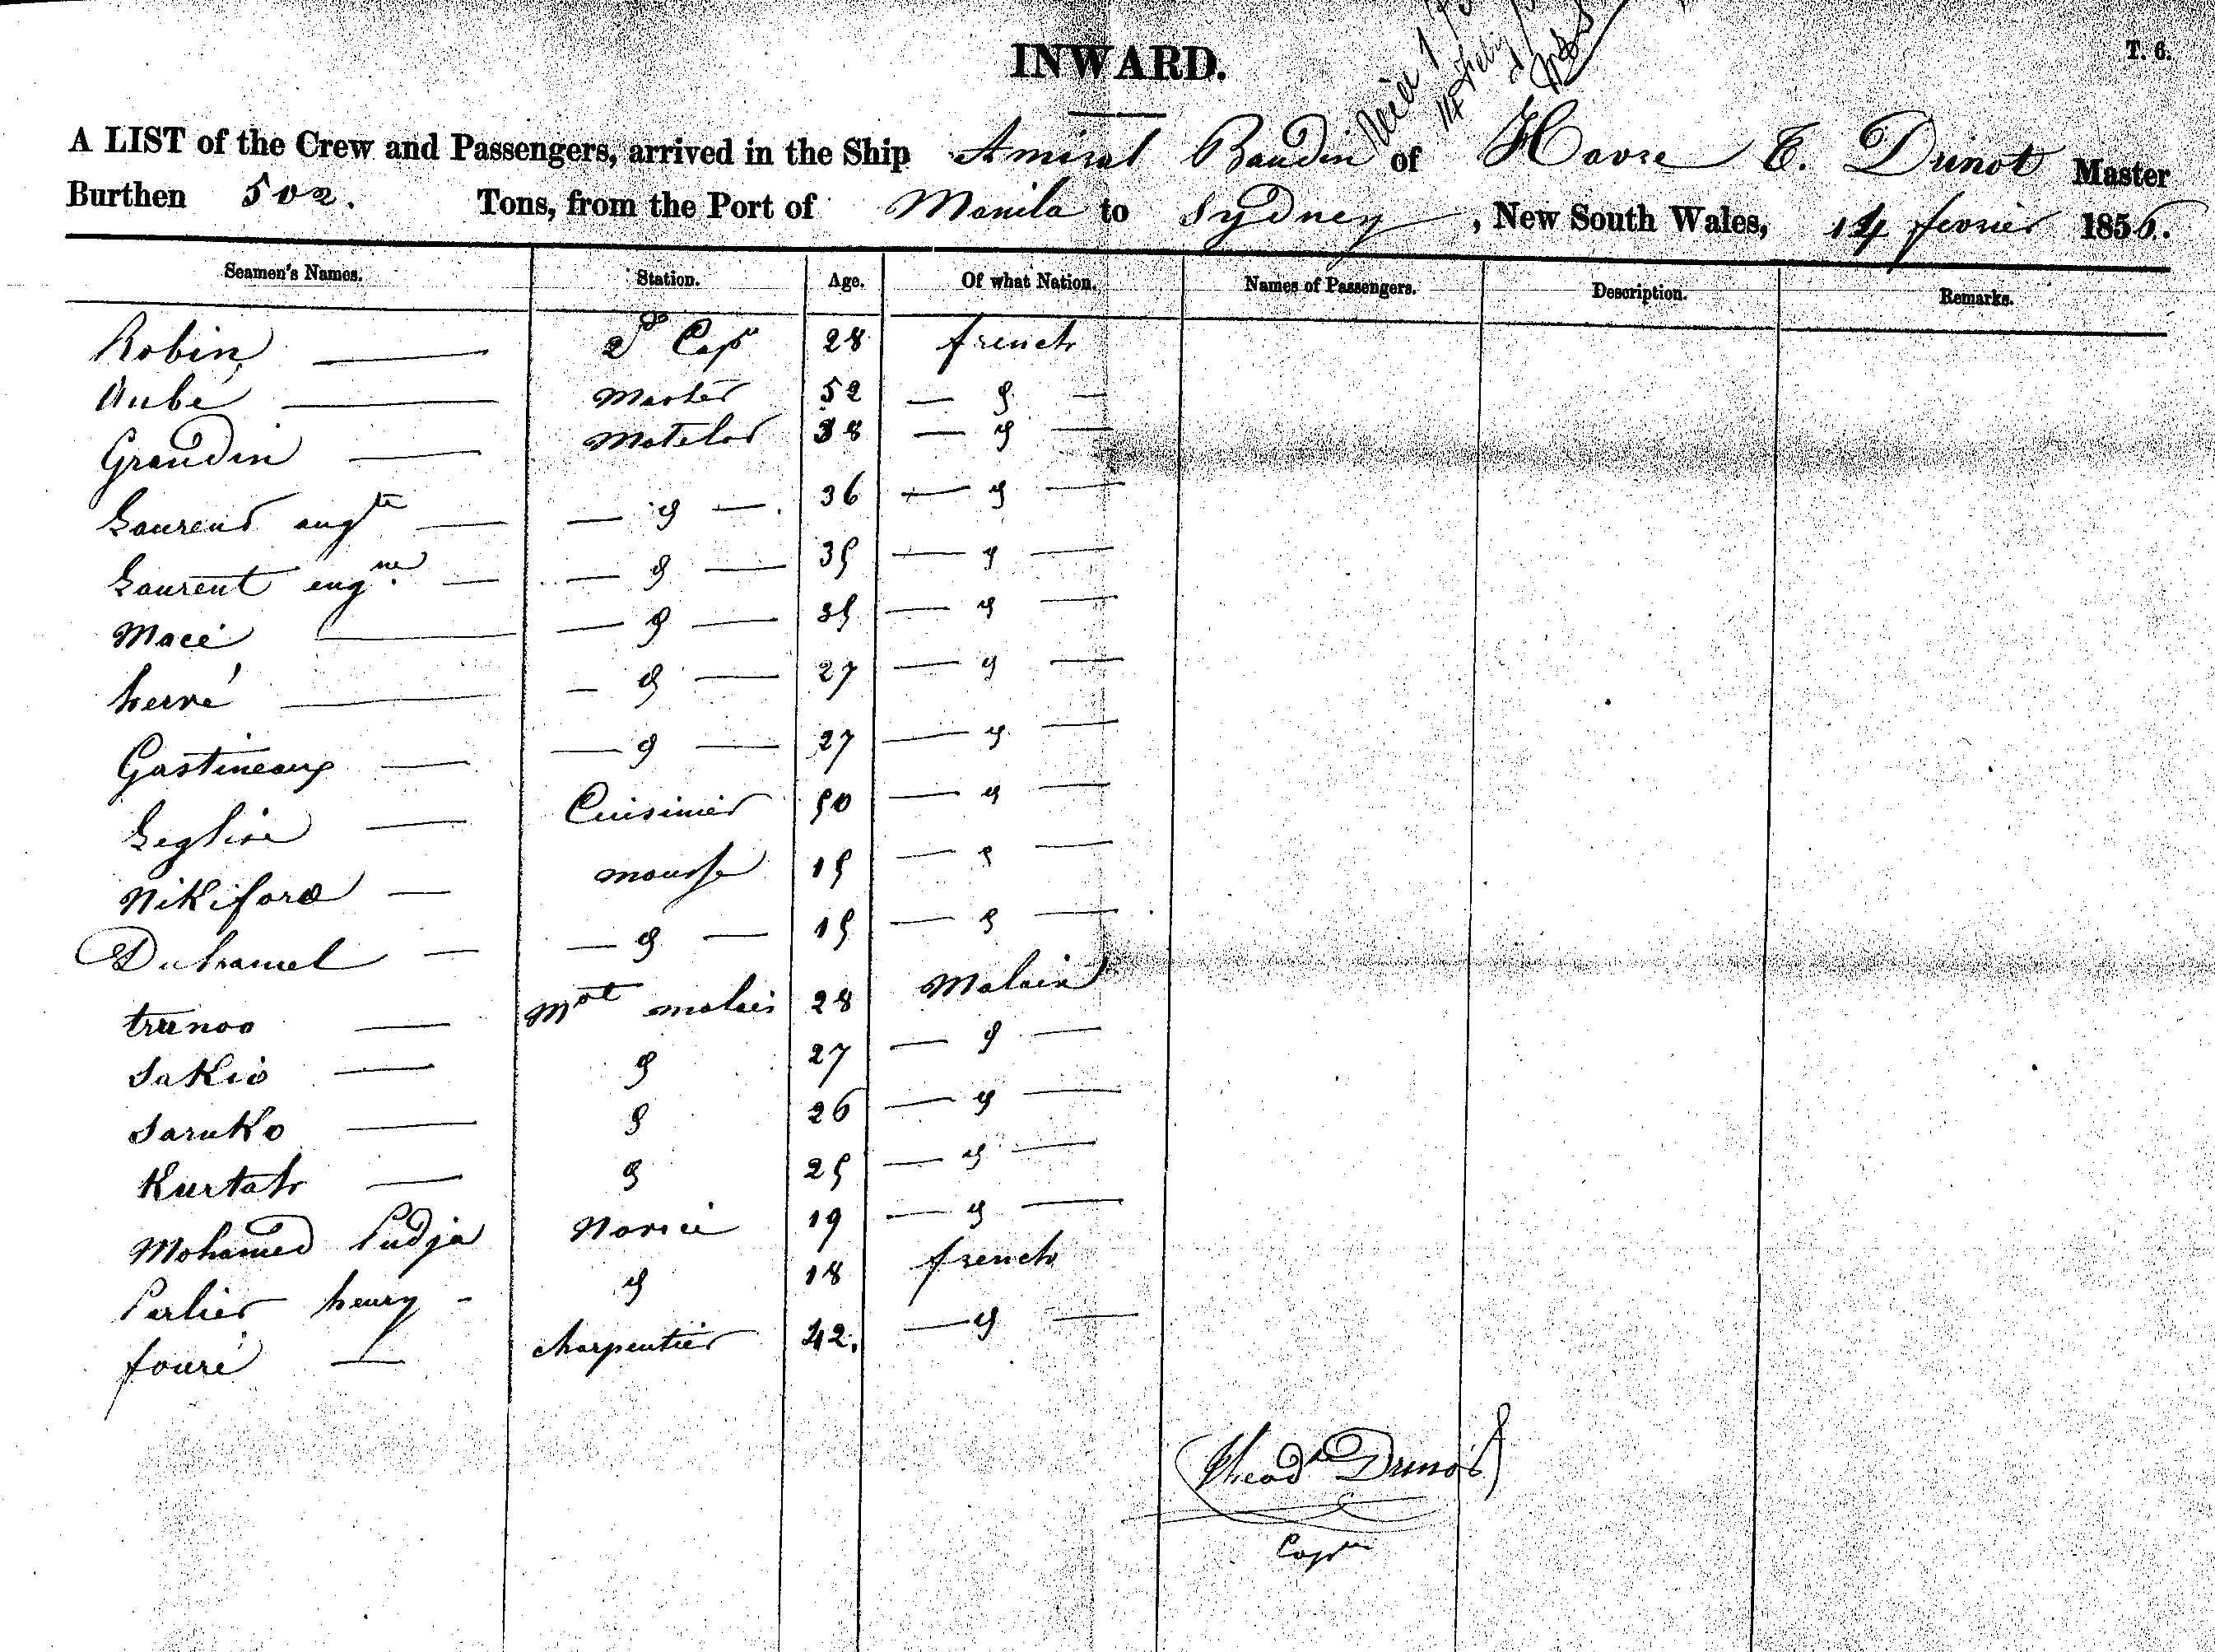 INWARD.
T. 6.
A LIST of the Crew and Passengers, arrived in the Ship Amiral Baudin of Havre T. Dunot Master
Burthen 502. Tons, from the Port of Manila to Sydney, New South Wales, 14 fevrier 1856.
Seamen's Names. Station. Age. Of what Nation. Names of Passengers. Description. Remarks.
Robin — 2d Cap 28 french
Aubé — Master 52 — d —
Grandin — Matelot 38 — d —
Laurent augte — — d — 36 — d —
Laurent eugne — — d — 35 — d —
Macé — — d — 35 — d —
hervé — — d — 27 — d —
Gastineaux — — d — 27 — d —
Leglise — Cuisinier 50 — d —
Nikiforo — mousse 15 — d —
Duhamel — — d — 15 — d —
trunoo — Mot malais 28 Malais
Sakio — d 27 — d —
Saruko — d 26 — d —
Kurtah — d 25 — d —
Mohamed Pudja Novice 19 — d —
Perlier henry - d 18 french
fouré — charpentier 42. — d —
Thead Dunot
Capne